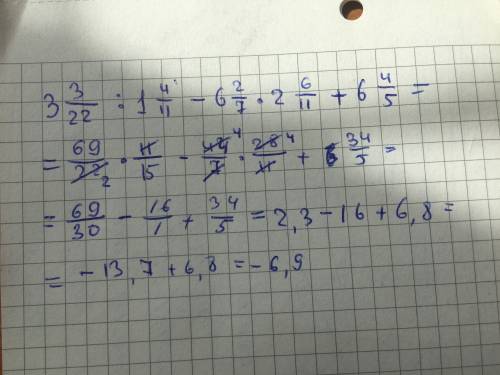 3 3/22 : 1 4/11 - 6 2/7 · 2 6/11 + 6 4/5 =
= 69/22 2 · 11/15 - 44/7 4 · 28/11 4 + 34/5 =
= 69/30 - 16/1 + 34/5 = 2,3 - 16 + 6,8 =
= - 13,7 + 6,8 = - 6,9